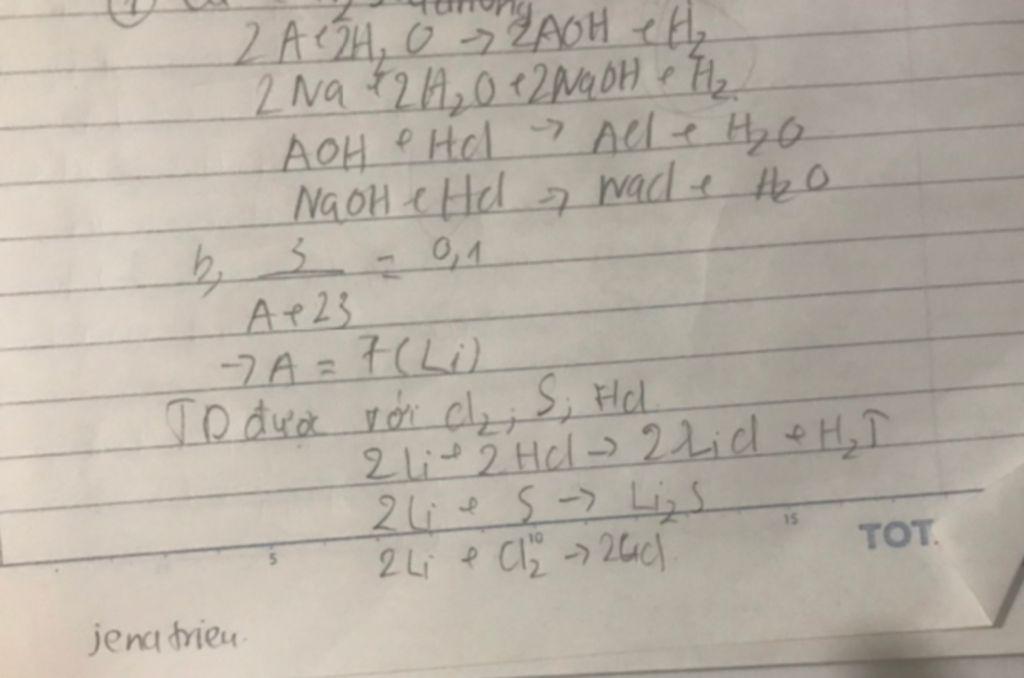 2A + 2H2O → 2AOH + H2
2Na + 2H2O + 2NaOH + H2
AOH + HCl → ACl + H2O
NaOH + HCl → NaCl + H2O
b, 3/(A+23) = 0,1
→ A = 7 (Li)
TD được với Cl2; S; HCl
2Li + 2HCl → 2LiCl + H2↑
2Li + S → Li2S
2Li + Cl2 → 2LiCl
5 10 15 TOT.
jenatrieu.